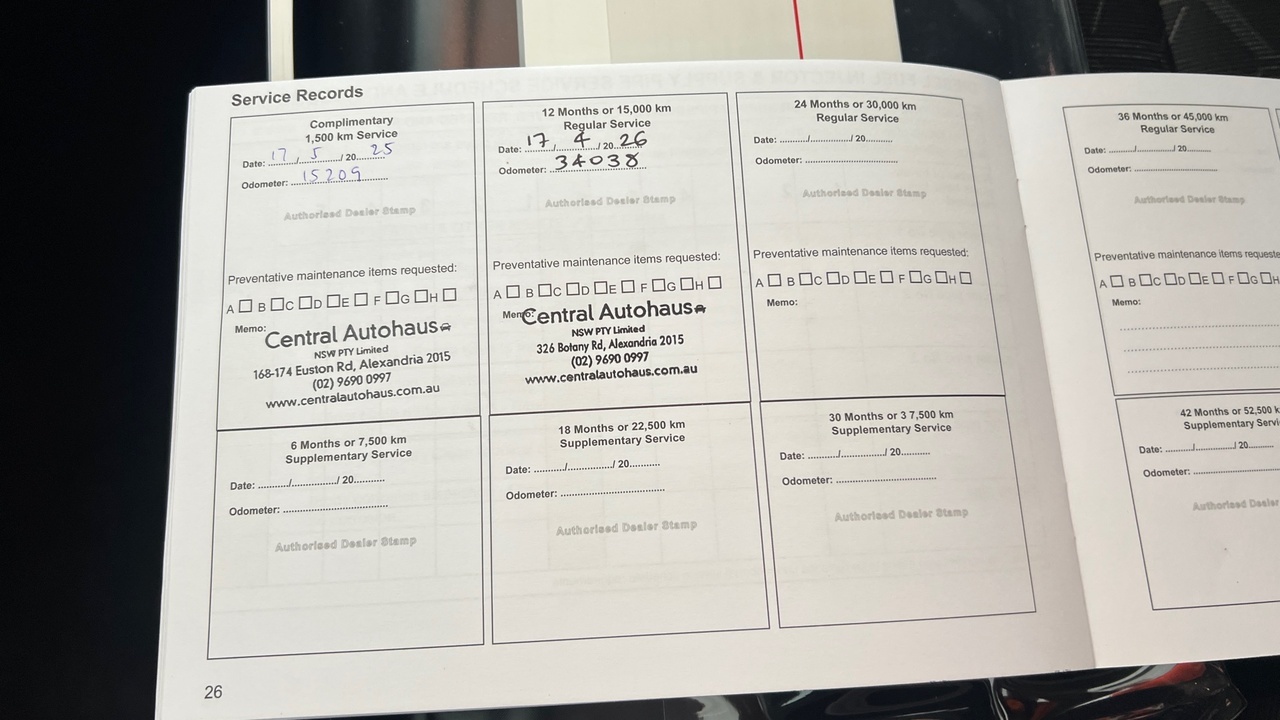 Service Records
Complimentary
1,500 km Service
Date: 17/5/2025
Odometer: 15209
Authorised Dealer Stamp
Preventative maintenance items requested:
A □ B □ C □ D □ E □ F □ G □ H □
Memo:
Central Autohaus
NSW PTY Limited
168-174 Euston Rd, Alexandria 2015
(02) 9690 0997
www.centralautohaus.com.au
12 Months or 15,000 km
Regular Service
Date: 17/4/2026
Odometer: 34038
Authorised Dealer Stamp
Preventative maintenance items requested:
A □ B □ C □ D □ E □ F □ G □ H □
Memo:
Central Autohaus
NSW PTY Limited
326 Botany Rd, Alexandria 2015
(02) 9690 0997
www.centralautohaus.com.au
24 Months or 30,000 km
Regular Service
Date: ........../................/ 20..........
Odometer: ................................
Authorised Dealer Stamp
Preventative maintenance items requested:
A □ B □ C □ D □ E □ F □ G □ H □
Memo:
36 Months or 45,000 km
Regular Service
Date: ........../................/ 20..........
Odometer: ................................
Authorised Dealer Stamp
Preventative maintenance items
A □ B □ C □ D □ E □ F □ G □ H
Memo:
6 Months or 7,500 km
Supplementary Service
Date: ........../................/ 20..........
Odometer: ................................
Authorised Dealer Stamp
18 Months or 22,500 km
Supplementary Service
Date: ........../................/ 20..........
Odometer: ................................
Authorised Dealer Stamp
30 Months or 3 7,500 km
Supplementary Service
Date: ........../................/ 20..........
Odometer: ................................
Authorised Dealer Stamp
42 Months or 52,500 k
Supplementary Servi
Date: ........../................/ 20..........
Odometer: ................................
Authorised Dealer
26